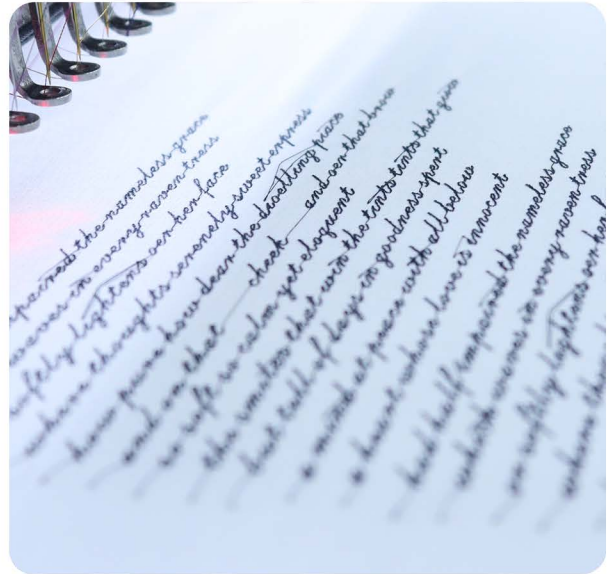 impaired the nameless grace
waves in every raven tress
softly lightens oer her face
where thoughts serenely sweet express
how pure how dear the dwelling place
and on that cheek and oer that brow
so soft so calm yet eloquent
the smiles that win the tints tints that glow
but tell of days in goodness spent
a mind at peace with all below
a heart whose love is innocent
had half impaired the nameless grace
which waves in every raven tress
or softly lightens oer her f
where tho